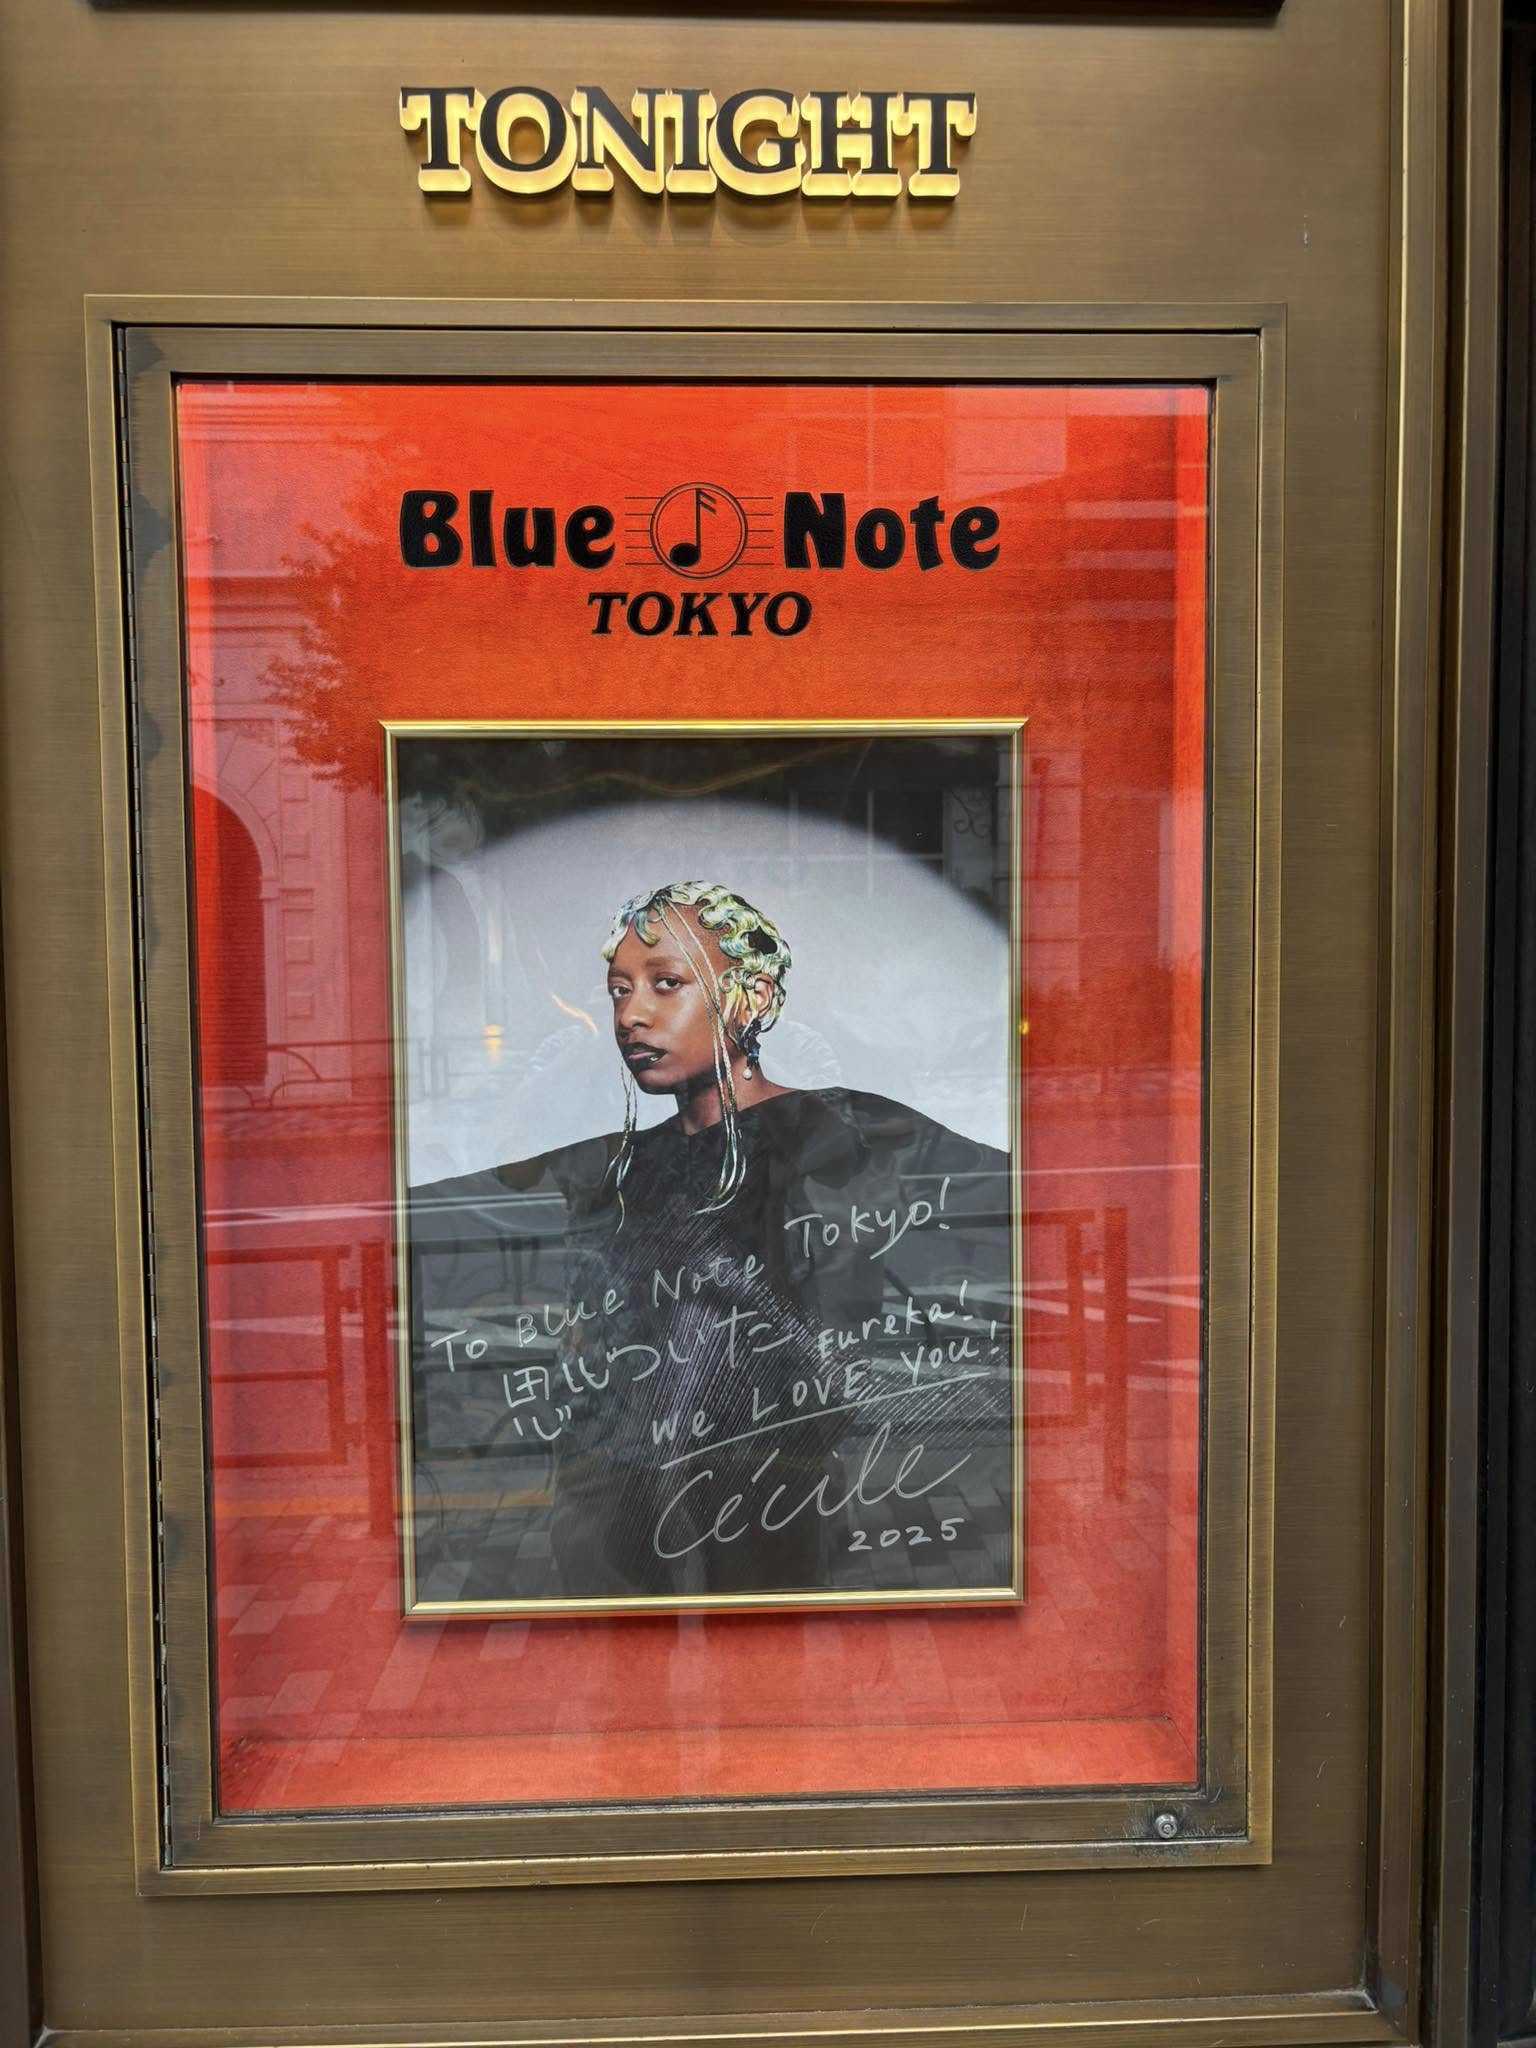 TONIGHT
Blue Note
TOKYO
To Blue Note Tokyo!
思いついた Eureka!
We LOVE You!
Cécile
2025